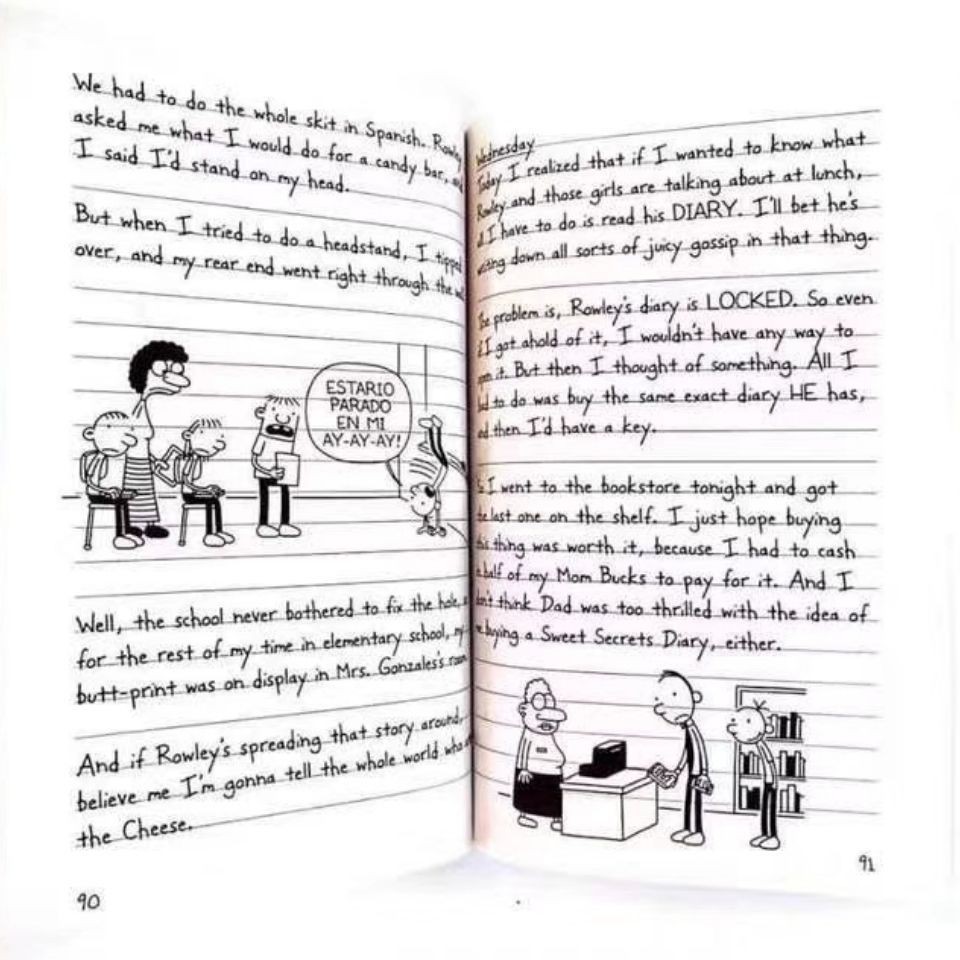 We had to do the whole skit in Spanish. Rowley
asked me what I would do for a candy bar,
I said I'd stand on my head.
But when I tried to do a headstand, I tipped
over, and my rear end went right through the
ESTARIO
PARADO
EN MI
AY-AY-AY!
Well, the school never bothered to fix the hole,
for the rest of my time in elementary school, my
butt-print was on display in Mrs. Gonzales's room
And if Rowley's spreading that story around,
believe me I'm gonna tell the whole world who
the Cheese.
90
Wednesday
Today I realized that if I wanted to know what
Rowley and those girls are talking about at lunch,
I have to do is read his DIARY. I'll bet he's
writing down all sorts of juicy gossip in that thing.
The problem is, Rowley's diary is LOCKED. So even
if I got ahold of it, I wouldn't have any way to
open it. But then I thought of something. All I
had to do was buy the same exact diary HE has,
and then I'd have a key.
So I went to the bookstore tonight and got
the last one on the shelf. I just hope buying
this thing was worth it, because I had to cash
half of my Mom Bucks to pay for it. And I
don't think Dad was too thrilled with the idea of
me buying a Sweet Secrets Diary, either.
91